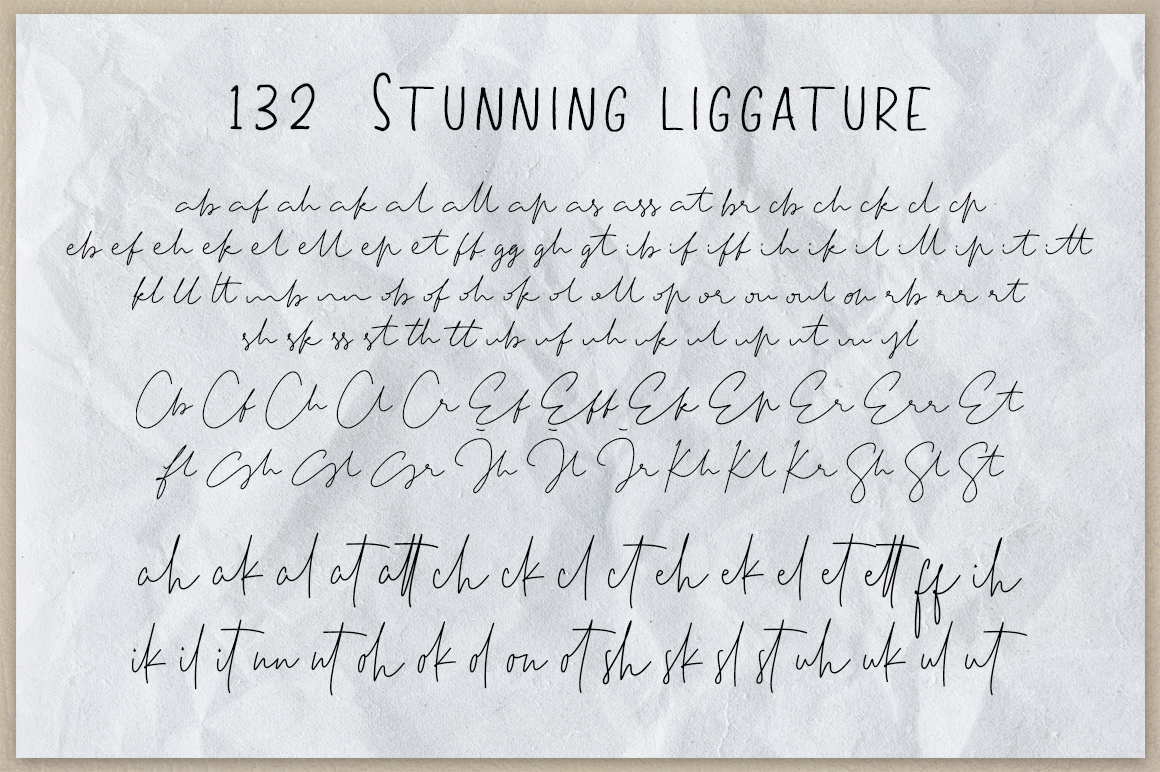 132 STUNNING LIGGATURE
ab af ah ak al all ap as ass at br cb ch ck cl cp
eb ef eh ek el ell ep et ff gg gh gt ib if iff ih ik il ill ip it itt
kl ll tt mb nn ob of oh ok ol oll op or ou oul on rb rr rt
sh sk ss st th tt ub uf uh uk ul up ut yl
Cb Cf Ch Cl Cr Ef Eff Ek Ep Er Err Et
fl Gh Gl Gr Jh Jl Jr Kh Kl Kr Sh Sl St
ah ak al at att ch ck cl ct eh ek el et ett ff ih
ik il it nn nt oh ok ol on ot sh sk sl st uh uk ul ut